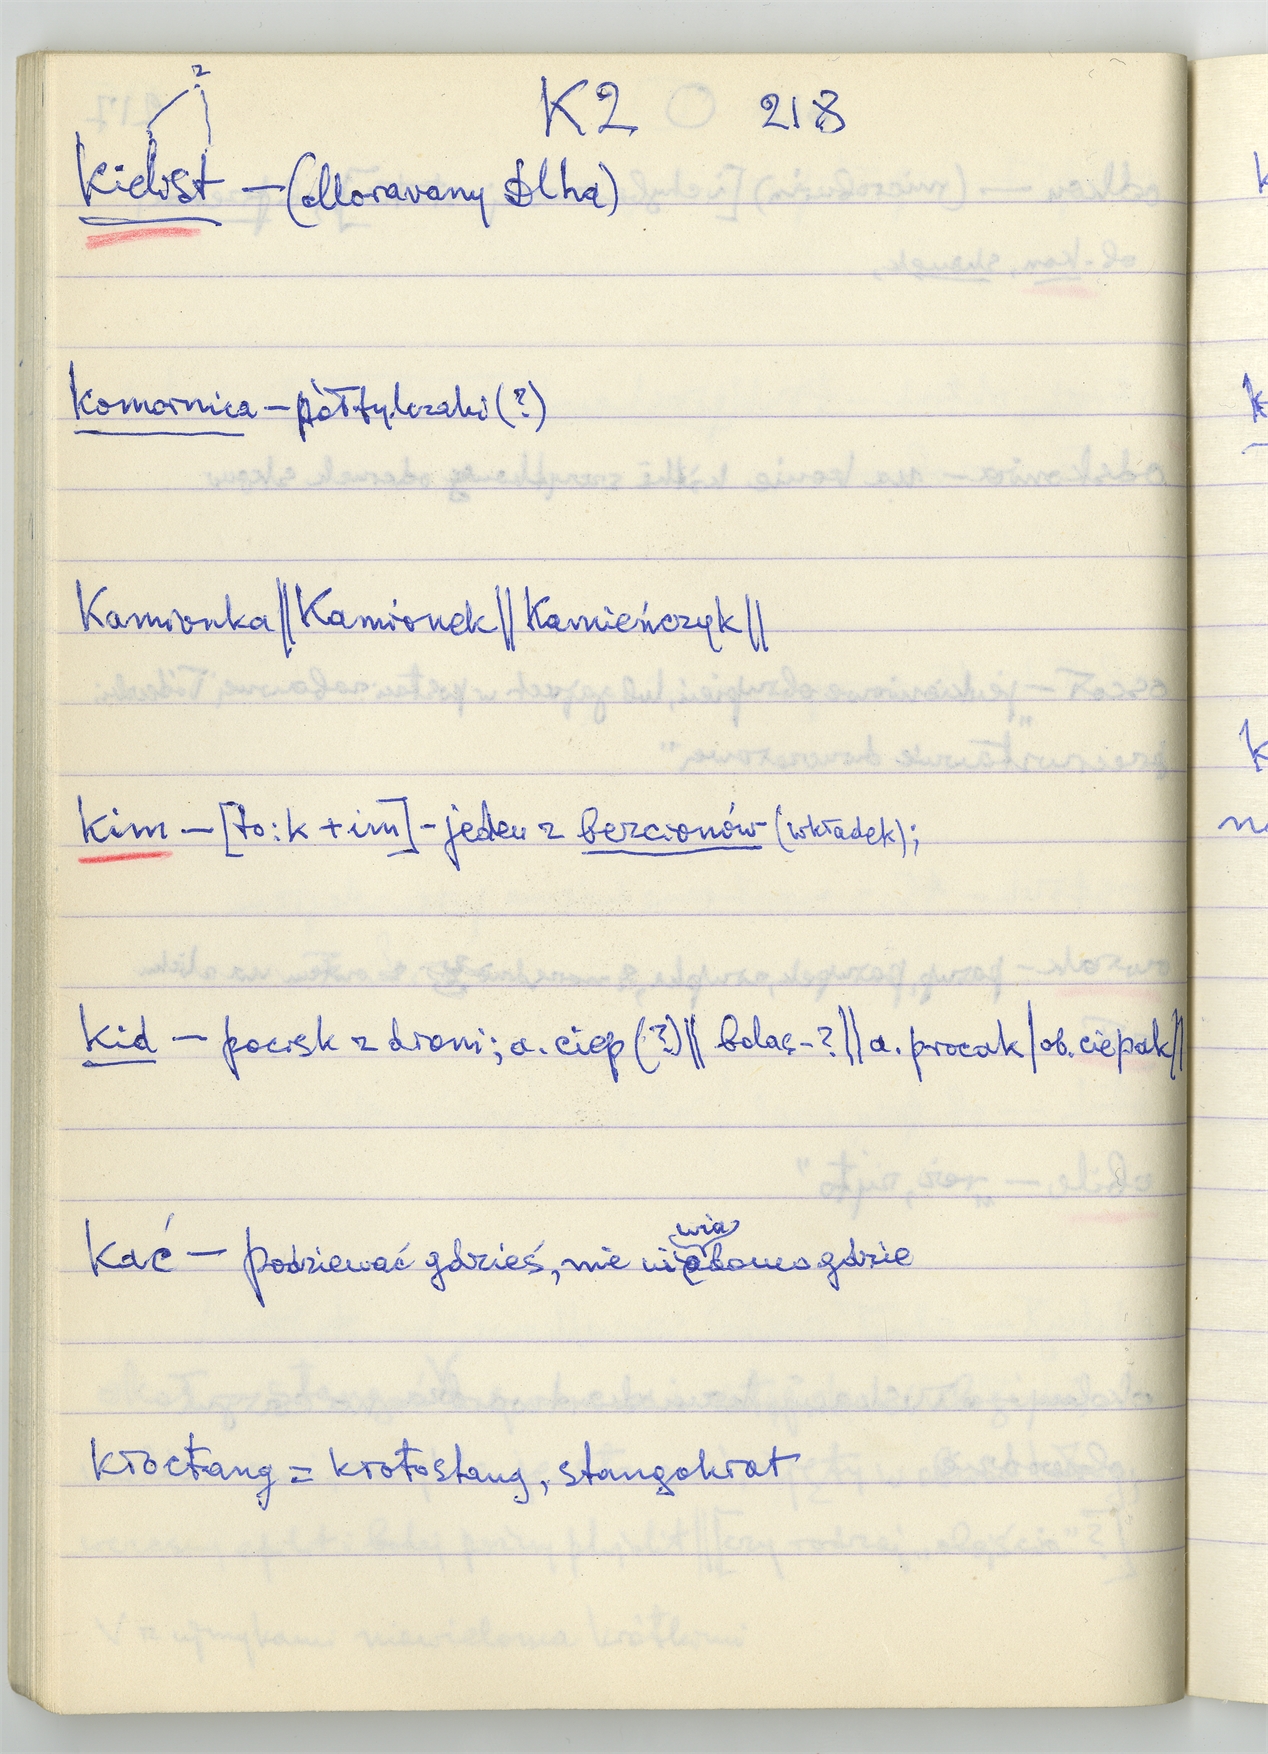 K2 218
Kielist – (Moravany Dlha)
Komornica – półtylczaki (?)
Kamionka || Kamionek || Kamieńczyk ||
Kim – [to: k + im] - jeden z bezcionów (wkładek);
Kid – pocisk z dłoni; a. ciep (?) || bolas - ? || a. procak | ob. ciepak ||
Kać – podziewać gdzieś, nie wiadomo gdzie
= krotostang, stangokrat